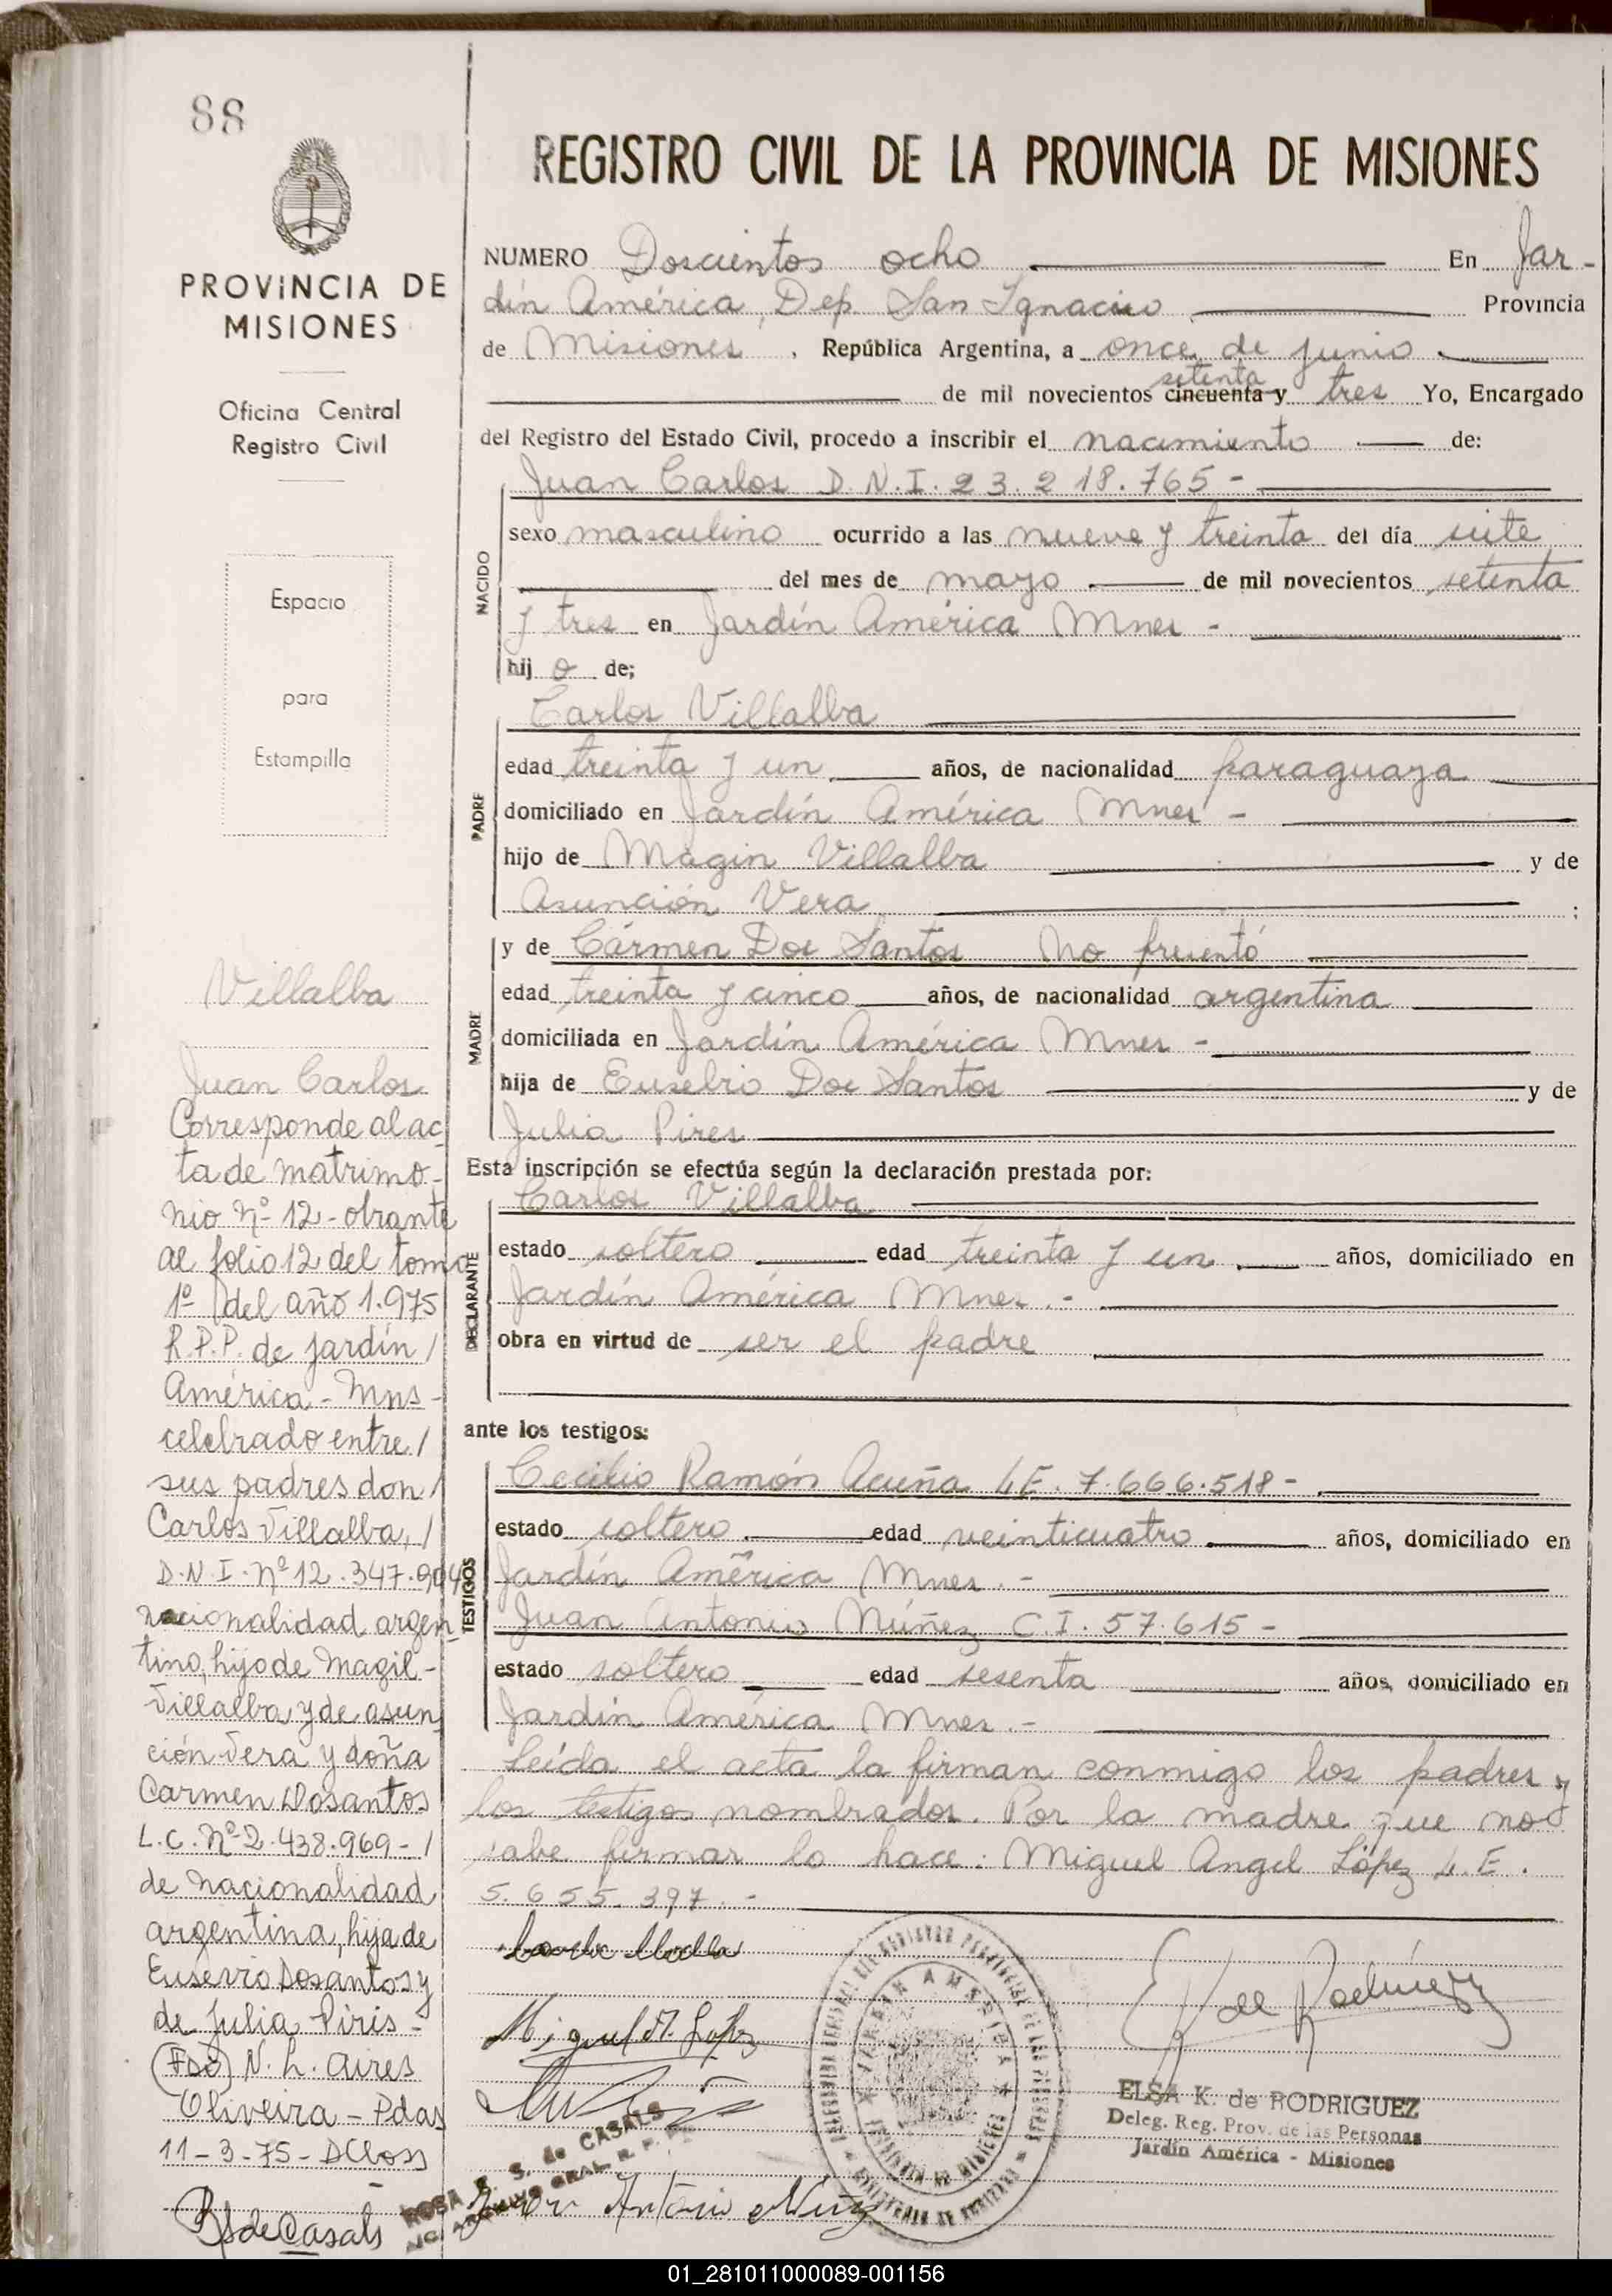 88
PROVINCIA DE
MISIONES
Oficina Central
Registro Civil
Espacio
para
Estampilla
Villalba
Juan Carlos
Corresponde al ac-
ta de matrimo-
nio Nº 12 - obrante
al folio 12 del tomo
1º del año 1.975
R.P.P. de Jardín /
América - Mns -
celebrado entre /
sus padres don /
Carlos Villalba, /
D.N.I. Nº 12.347.904
nacionalidad argen-
tino, hijo de Magil -
Villalba y de asun-
ción Vera y doña
Carmen Dosantos
L.C. Nº 2.438.969 - /
de nacionalidad
argentina, hija de
Eusevio Dosantos y
de Julia Piris -
(Fdo) N. L. Aires
Oliveira - Pdas
11-3-75 -
REGISTRO CIVIL DE LA PROVINCIA DE MISIONES
NUMERO Doscientos ocho En Jar-
dín América, Dep. San Ignacio Provincia
de Misiones, República Argentina, a once de junio
setenta
de mil novecientos cincuenta y tres Yo, Encargado
del Registro del Estado Civil, procedo a inscribir el nacimiento de:
Juan Carlos D.N.I. 23.218.765 -
NACIDO
sexo masculino ocurrido a las nueve y treinta del día siete
del mes de mayo de mil novecientos setenta
y tres en Jardín América Mnes -
hij o de;
Carlos Villalba
PADRE
edad treinta y un años, de nacionalidad paraguaya
domiciliado en Jardín América Mnes -
hijo de Magin Villalba y de
Asunción Vera ;
MADRE
y de Cármen Dos Santos No presentó
edad treinta y cinco años, de nacionalidad argentina
domiciliada en Jardín América Mnes -
hija de Eusebio Dos Santos y de
Julia Pires
Esta inscripción se efectúa según la declaración prestada por:
Carlos Villalba
DECLARANTE
estado soltero edad treinta y un años, domiciliado en
Jardín América Mnes. -
obra en virtud de ser el padre
ante los testigos:
TESTIGOS
Cecilio Ramón Acuña L.E. 7.666.518 -
estado soltero edad veinticuatro años, domiciliado en
Jardín América Mnes. -
Juan Antonio Núñez C.I. 57.615 -
estado soltero edad sesenta años, domiciliado en
Jardín América Mnes. -
Leída el acta la firman conmigo los padres y
los testigos nombrados. Por la madre que no
sabe firmar lo hace: Miguel Angel López L.E.
5.655.397. -
Miguel A. Lopez
JARDIN AMERICA
ELSA K. de RODRIGUEZ
Deleg. Reg. Prov. de las Personas
Jardín América - Misiones
ROSA S. de CASALS
ARCHIVO GRAL. R. P.
Antonio
de Casals
01_281011000089-001156